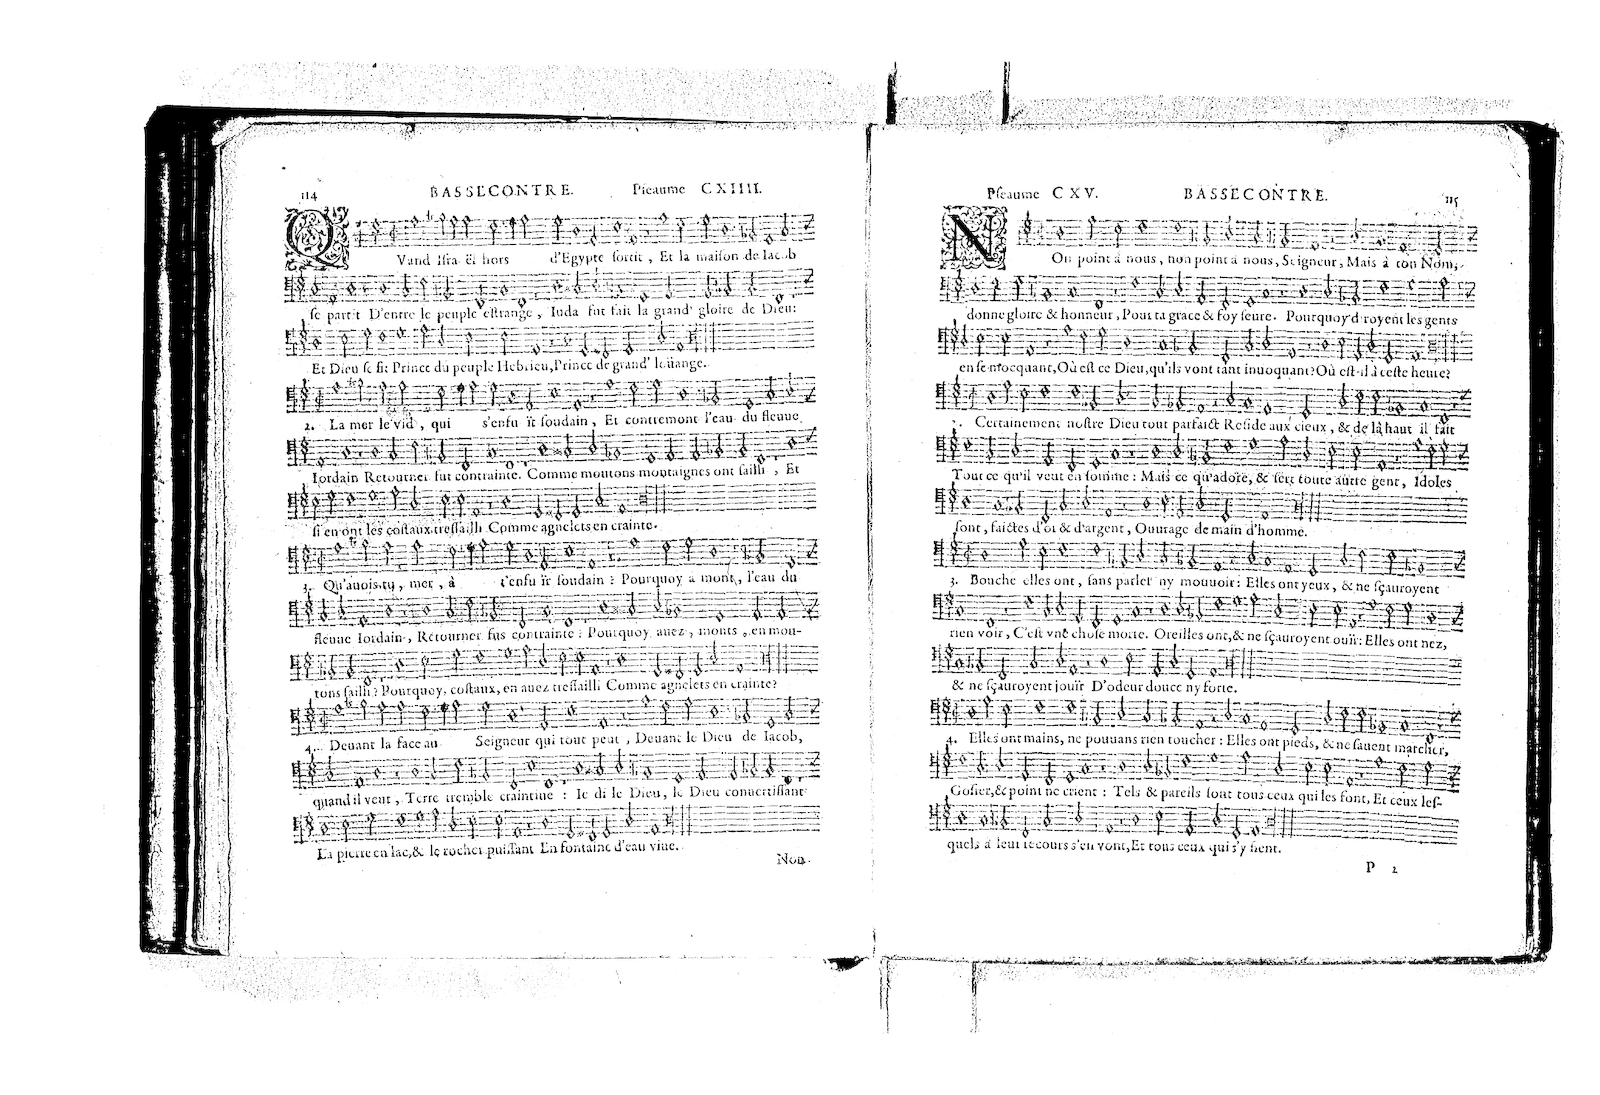 114 BASSECONTRE. Pſeaume CXIIII.
QVand Iſra ël hors d'Egypte ſortit, Et la maiſon de Iacob
ſe partit D'entre le peuple eſtrange, Iuda fut fait la grand' gloire de Dieu:
Et Dieu ſe fit Prince du peuple Hebrieu, Prince de grand' loüange.
2. La mer le vid, qui s'enfu ït ſoudain, Et contremont l'eau du fleuue
Iordain Retourner fut contrainte. Comme moutons montaignes ont ſailli, Et
ſi en ont les coſtaux treſſailli Comme agnelets en crainte.
3. Qu'auois-tu, mer, à t'enfu ïr ſoudain? Pourquoy a mont, l'eau du
fleuue Iordain, Retourner fus contrainte? Pourquoy auez, monts, en mou-
tons ſailli? Pourquoy, coſtaux, en auez treſſailli Comme agnelets en crainte?
4. Deuant la face au Seigneur qui tout peut, Deuant le Dieu de Iacob,
quand il veut, Terre tremble craintiue: Ie di le Dieu, le Dieu conuertiſſant
La pierre en lac, & le rocher puiſſant En fontaine d'eau viue.
Non
Pſeaume CXV. BASSECONTRE. 115
NOn point à nous, non point à nous, Seigneur, Mais à ton Nom,
donne gloire & honneur, Pour ta grace & foy ſeure. Pourquoy diroyent les gents
en ſe mocquant, Où eſt ce Dieu, qu'ils vont tant inuoquant? Où eſt-il à ceſte heure?
2. Certainement noſtre Dieu tout parfaict Reſide aux cieux, & de là haut il fait
Tout ce qu'il veut en ſomme: Mais ce qu'adore, & ſert toute autre gent, Idoles
ſont, faictes d'or & d'argent, Ouurage de main d'homme.
3. Bouche elles ont, ſans parler ny mouuoir: Elles ont yeux, & ne ſçauroyent
rien voir, C'eſt vne choſe morte. Oreilles ont, & ne ſçauroyent ouïr: Elles ont nez,
& ne ſçauroyent jouïr D'odeur douce ny forte.
4. Elles ont mains, ne pouuans rien toucher: Elles ont pieds, & ne ſauent marcher,
Goſier, & point ne crient: Tels & pareils ſont tous ceux qui les font, Et ceux leſ-
quels à leur recours s'en vont, Et tous ceux qui s'y fient.
P 2